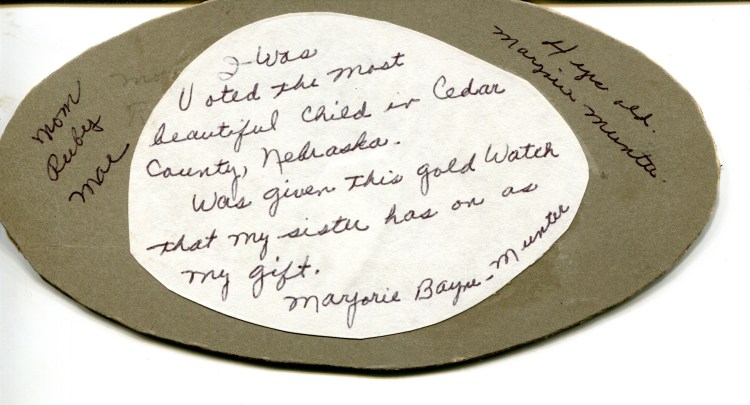 Mom
Ruby
Mae
I Was
Voted the most
beautiful child in Cedar
County, Nebraska.
Was given this gold Watch
that my sister has on as
my gift.
Marjorie Bayne-Munter
4 yrs old.
Marjorie Munter